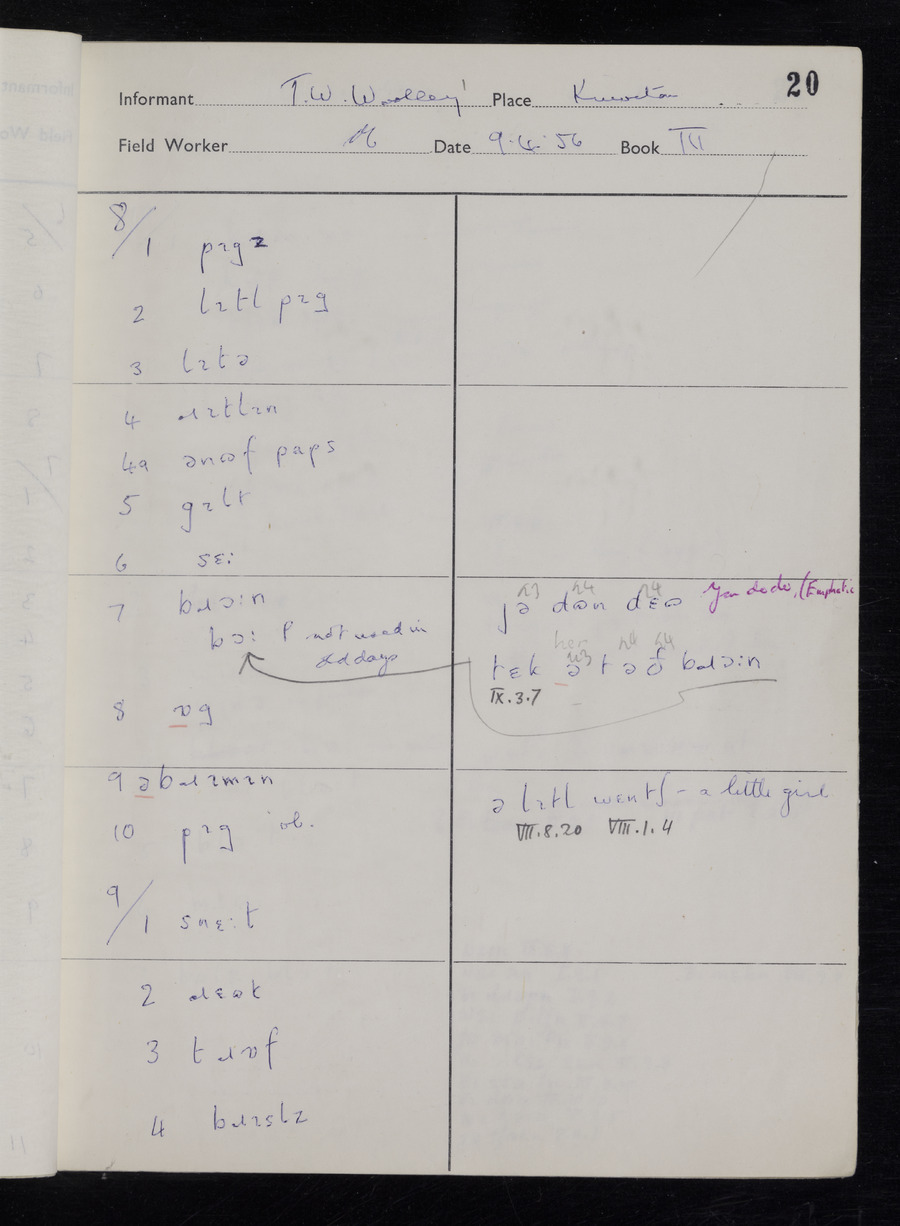 20
Informant T.W. Woolley Place Kniveton
Field Worker Date 9·4·56 Book III
8/
1 pɪgz
2 lɪtl pɪg
3 lɪtə
4 ɹɪtlɪn
4a ənɷf paps
5 gɪlt
6 sɛ:
7 bɹɔ:n
bɔ: not used in
old days
8 ɒg
9 əbɹɪmɪn
10 pɪg ob.
9/
1 snɛ:t
2 ɹɛɷt
3 tɹɒf
4 bɹɪslz
jə dɷn dɛɷ You do do, (Emphatic
her
tɛk ə t ə ð bɹɔ:n
IX.3.7
ə lɪtl wɛntʃ – a little girl
VIII.8.20 VIII.1.4